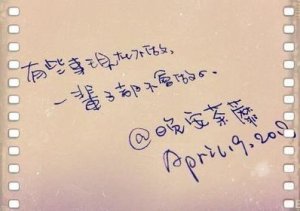 有些事现在不做,
一辈子都不会做了。
@晚安紫藤
April.9.20